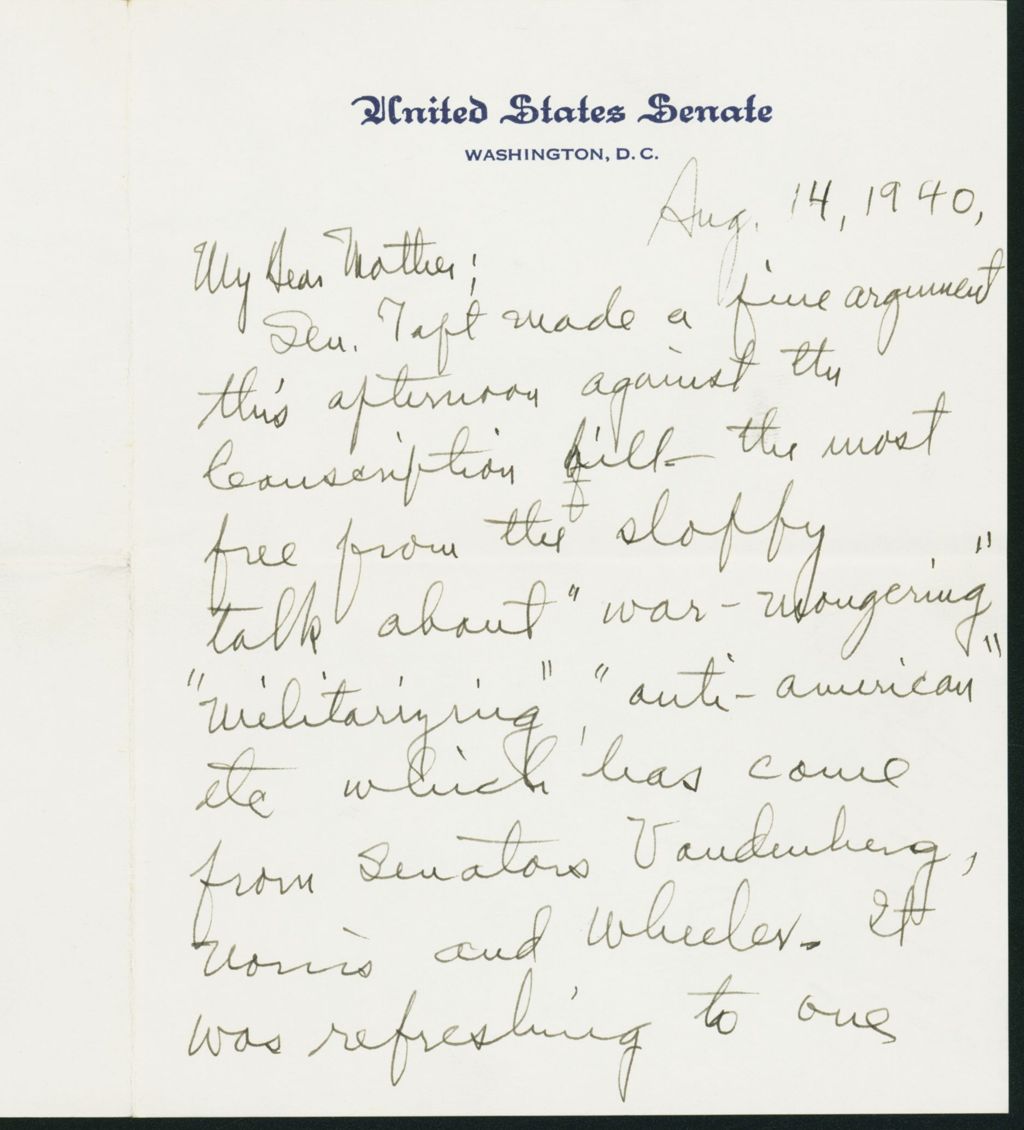 United States Senate
WASHINGTON, D. C.
Aug. 14, 1940,
My Dear Mother;
Sen. Taft made a fine argument
this afternoon against the
Conscription bill - the most
free from the sloppy
talk about "war-mongering"
"Militarizing", "anti-american"
etc which has come
from Senators Vandenberg,
Norris and Wheeler. It
was refreshing to one